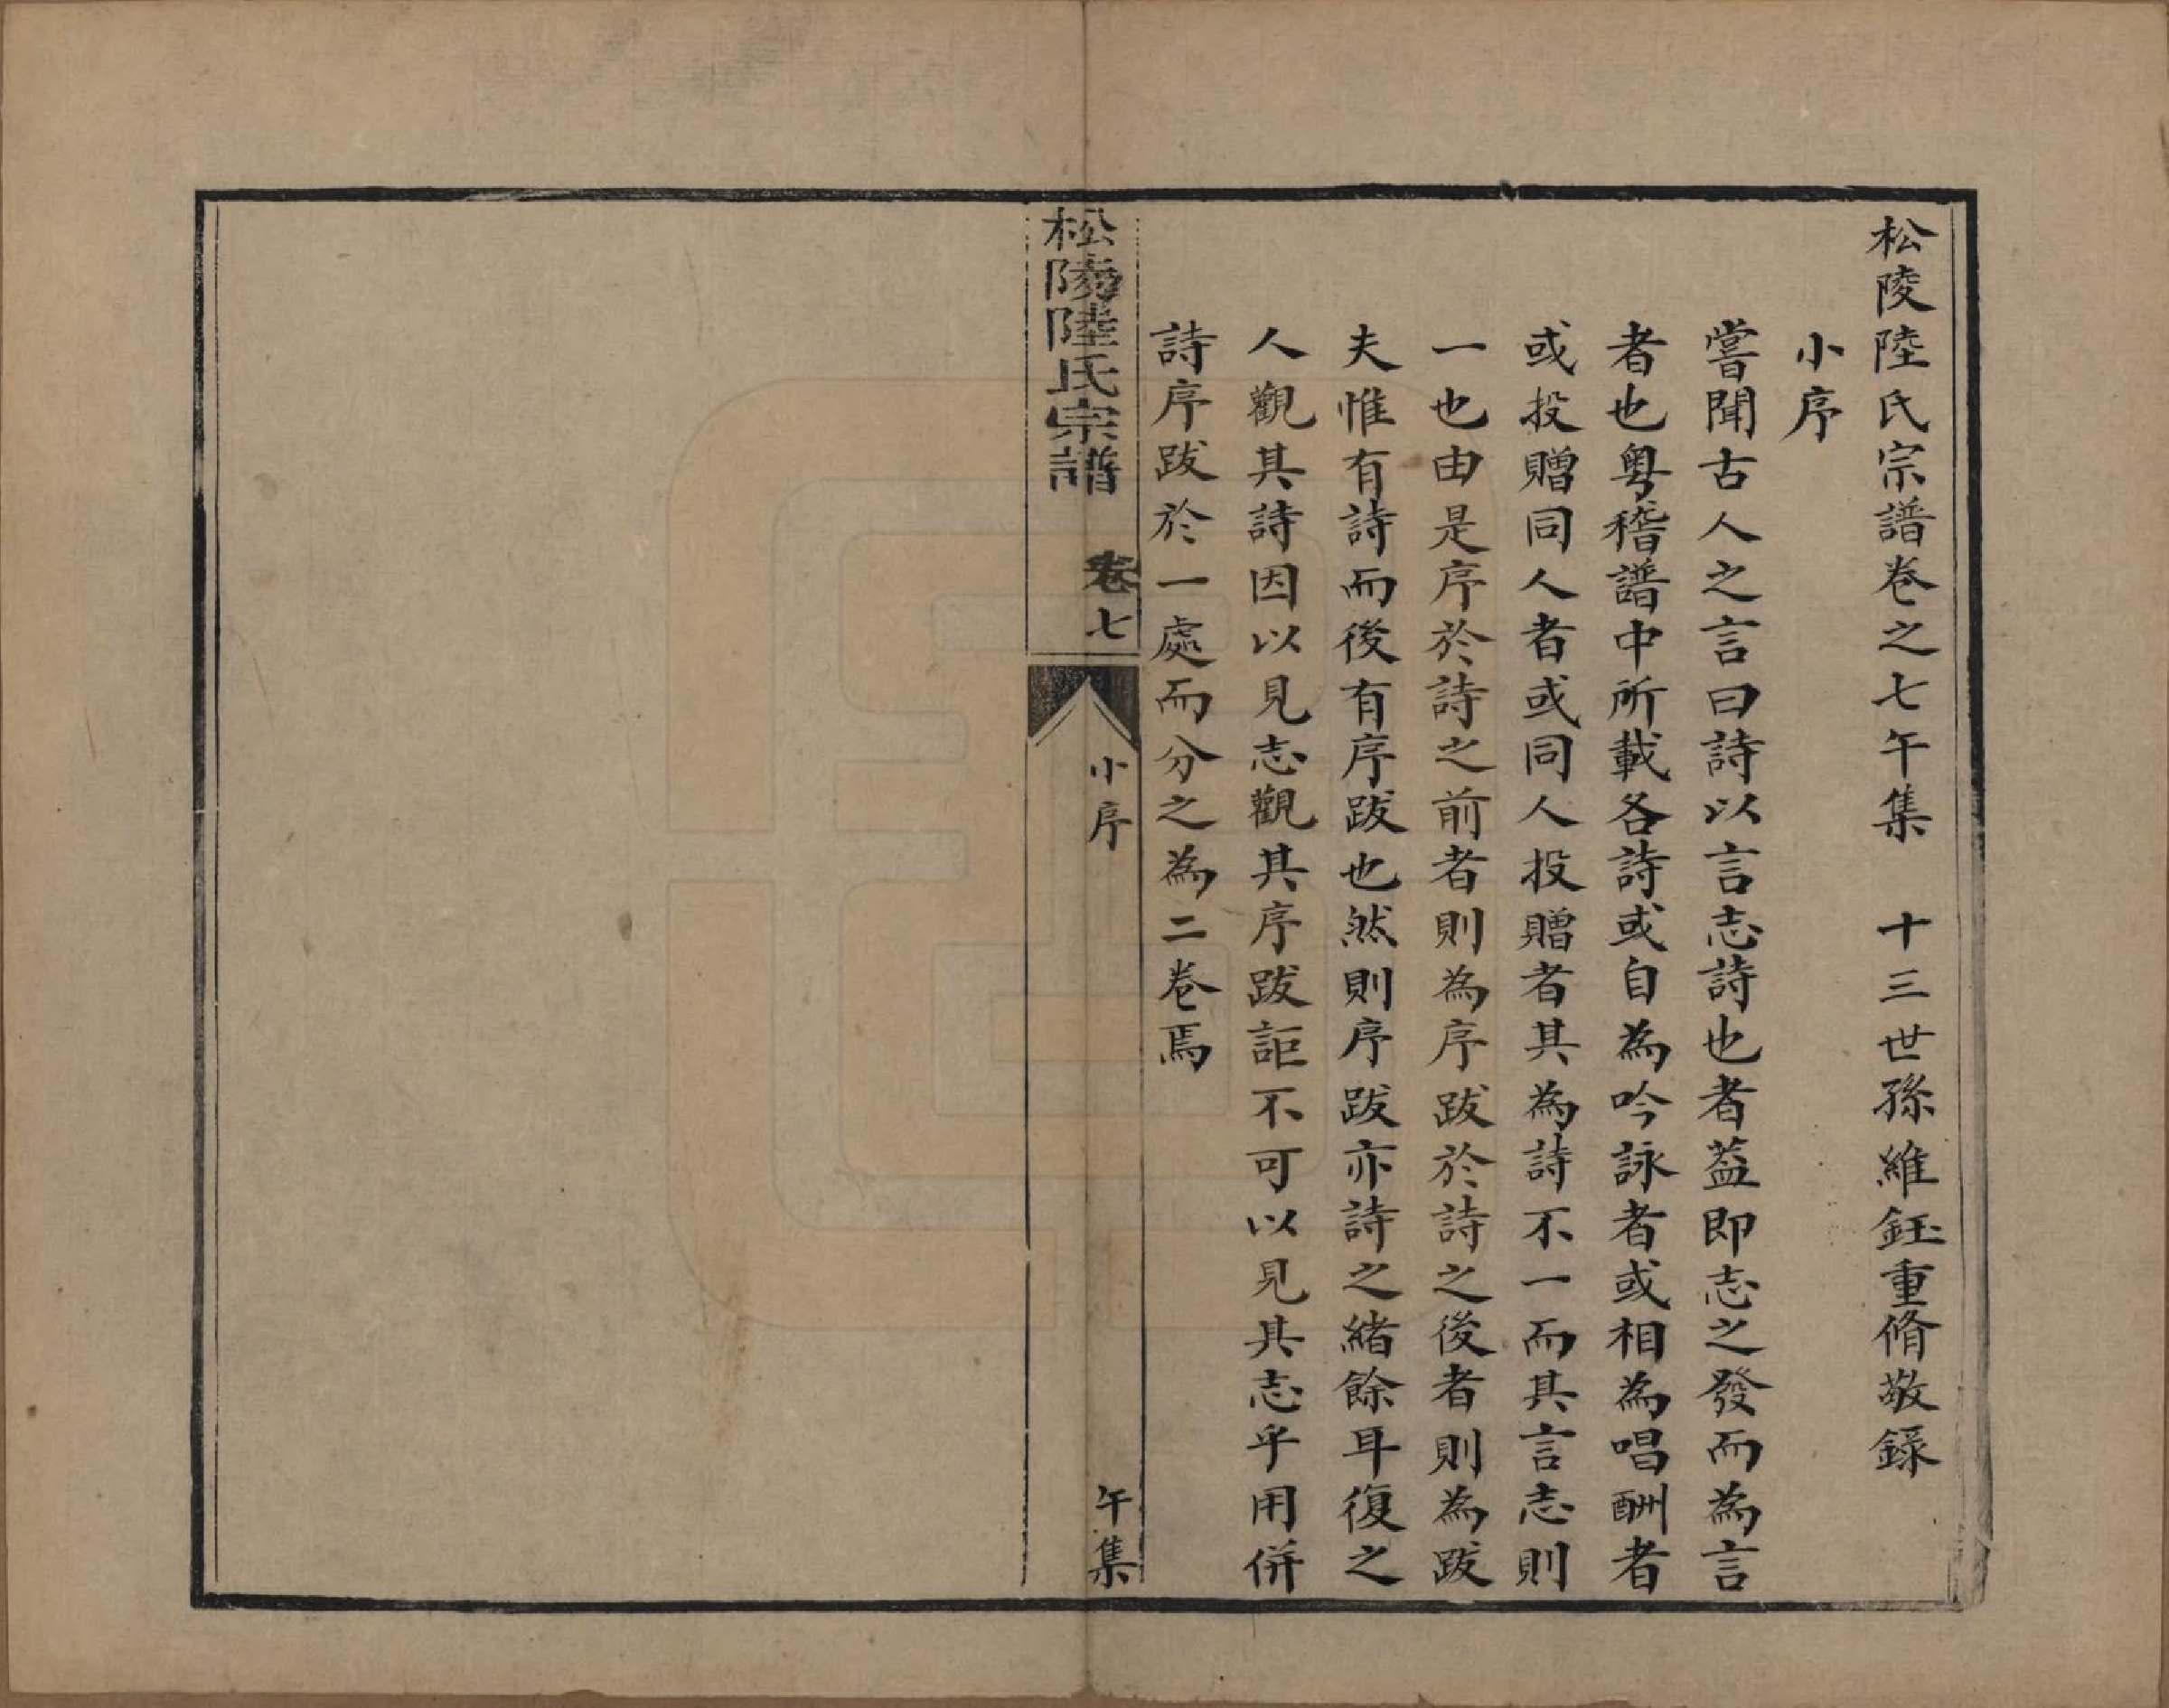 松陵陸氏宗譜卷之七午集　十三世孫維鈺重脩敬錄
小序
嘗聞古人之言曰詩以言志詩也者葢即志之發而為言
者也粵稽譜中所載各詩或自為吟詠者或相為唱酬者
或投贈同人者或同人投贈者其為詩不一而其言志則
一也由是序於詩之前者則為序跋於詩之後者則為跋
夫惟有詩而後有序跋也然則序跋亦詩之緒餘耳復之
人觀其詩因以見志觀其序跋詎不可以見其志乎用併
詩序跋於一處而分之為二卷焉
松陵陸氏宗譜　卷七　小序　午集